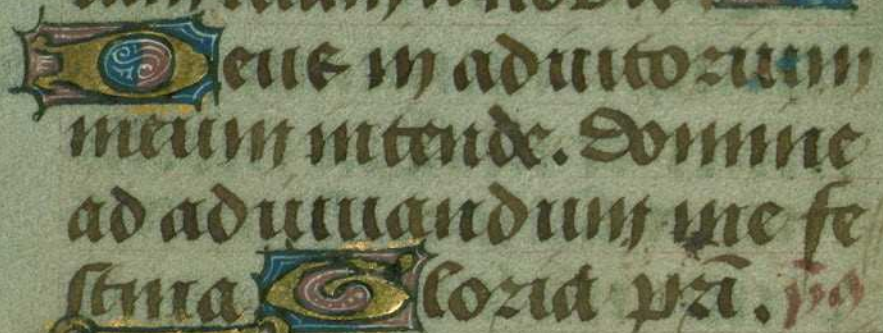 Deus in adiutorium
meum intende. Domine
ad adiuuandum me fe
stina Gloria pri.